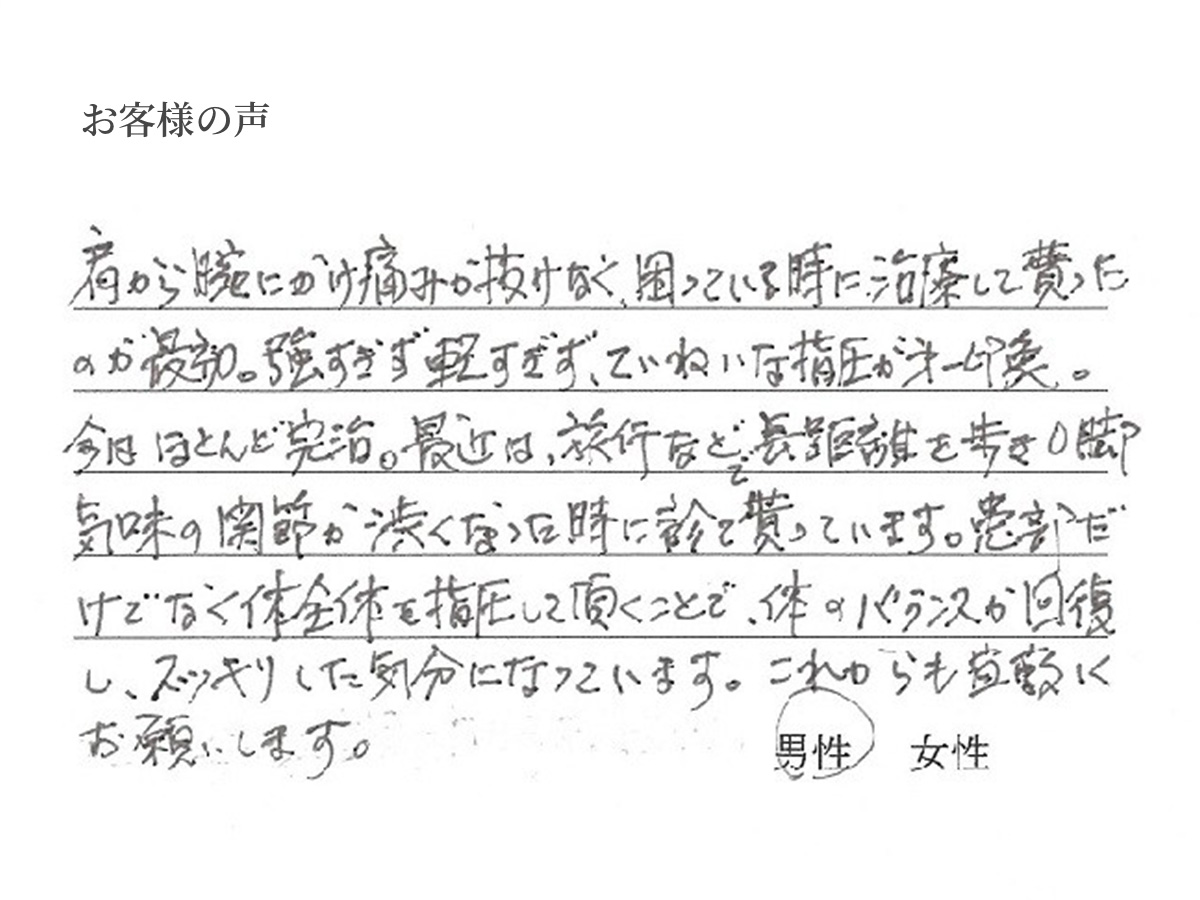 お客様の声
肩から腕にかけ痛みが抜けなく、困っている時に治療して貰った
のが最初。強すぎず軽すぎず、ていねいな指圧が第一印象。
今は ほとんど完治。最近は、旅行などで長距離を歩きO脚
気味の関節が渋くなった時に診て貰っています。患部だ
けでなく体全体を指圧して頂くことで、体のバランスが回復
し、スッキリした気分になっています。これからも宜敷く
お願いします。
男性 女性